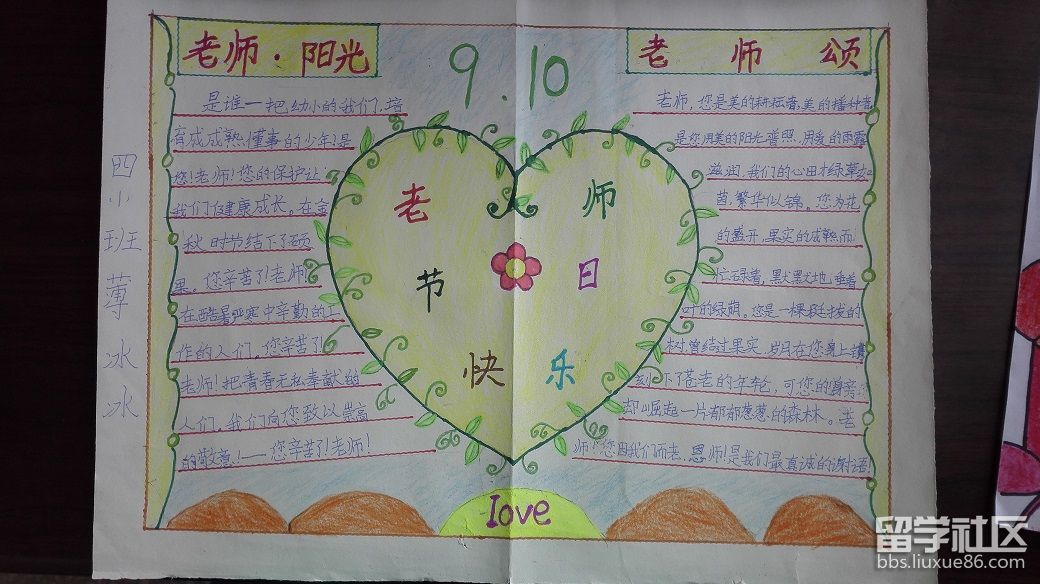 老师·阳光
是谁一把幼小的我们，培
育成成熟懂事的少年！是
您！老师！您的保护让
我们健康成长。在金
秋时节结下了硕
果。您辛苦了！老师！
在酷暑严寒中辛勤的工
作的人们。您辛苦了！
老师！把青春无私奉献给
人们。我们向您致以崇高
的敬意！——您辛苦了！老师！
9.10
老师
节日
快乐
love
老师颂
老师，您是美的耕耘者，美的播种者
是您用美的阳光普照，用爱的雨露
滋润，我们的心田才绿草如
茵，繁华似锦。您为花
的盛开，果实的成熟而
忙碌着，默默地，垂着
叶的绿荫。您是一棵挺拔的
树曾结过果实，岁月在您身上镌
刻下了苍老的年轮，可您的身旁
却崛起一片郁郁葱葱的森林。老
师！您因我们而老，恩师！是我们最真诚的谢语！
四小班 薄冰冰
留学社区
bbs.liuxue86.com